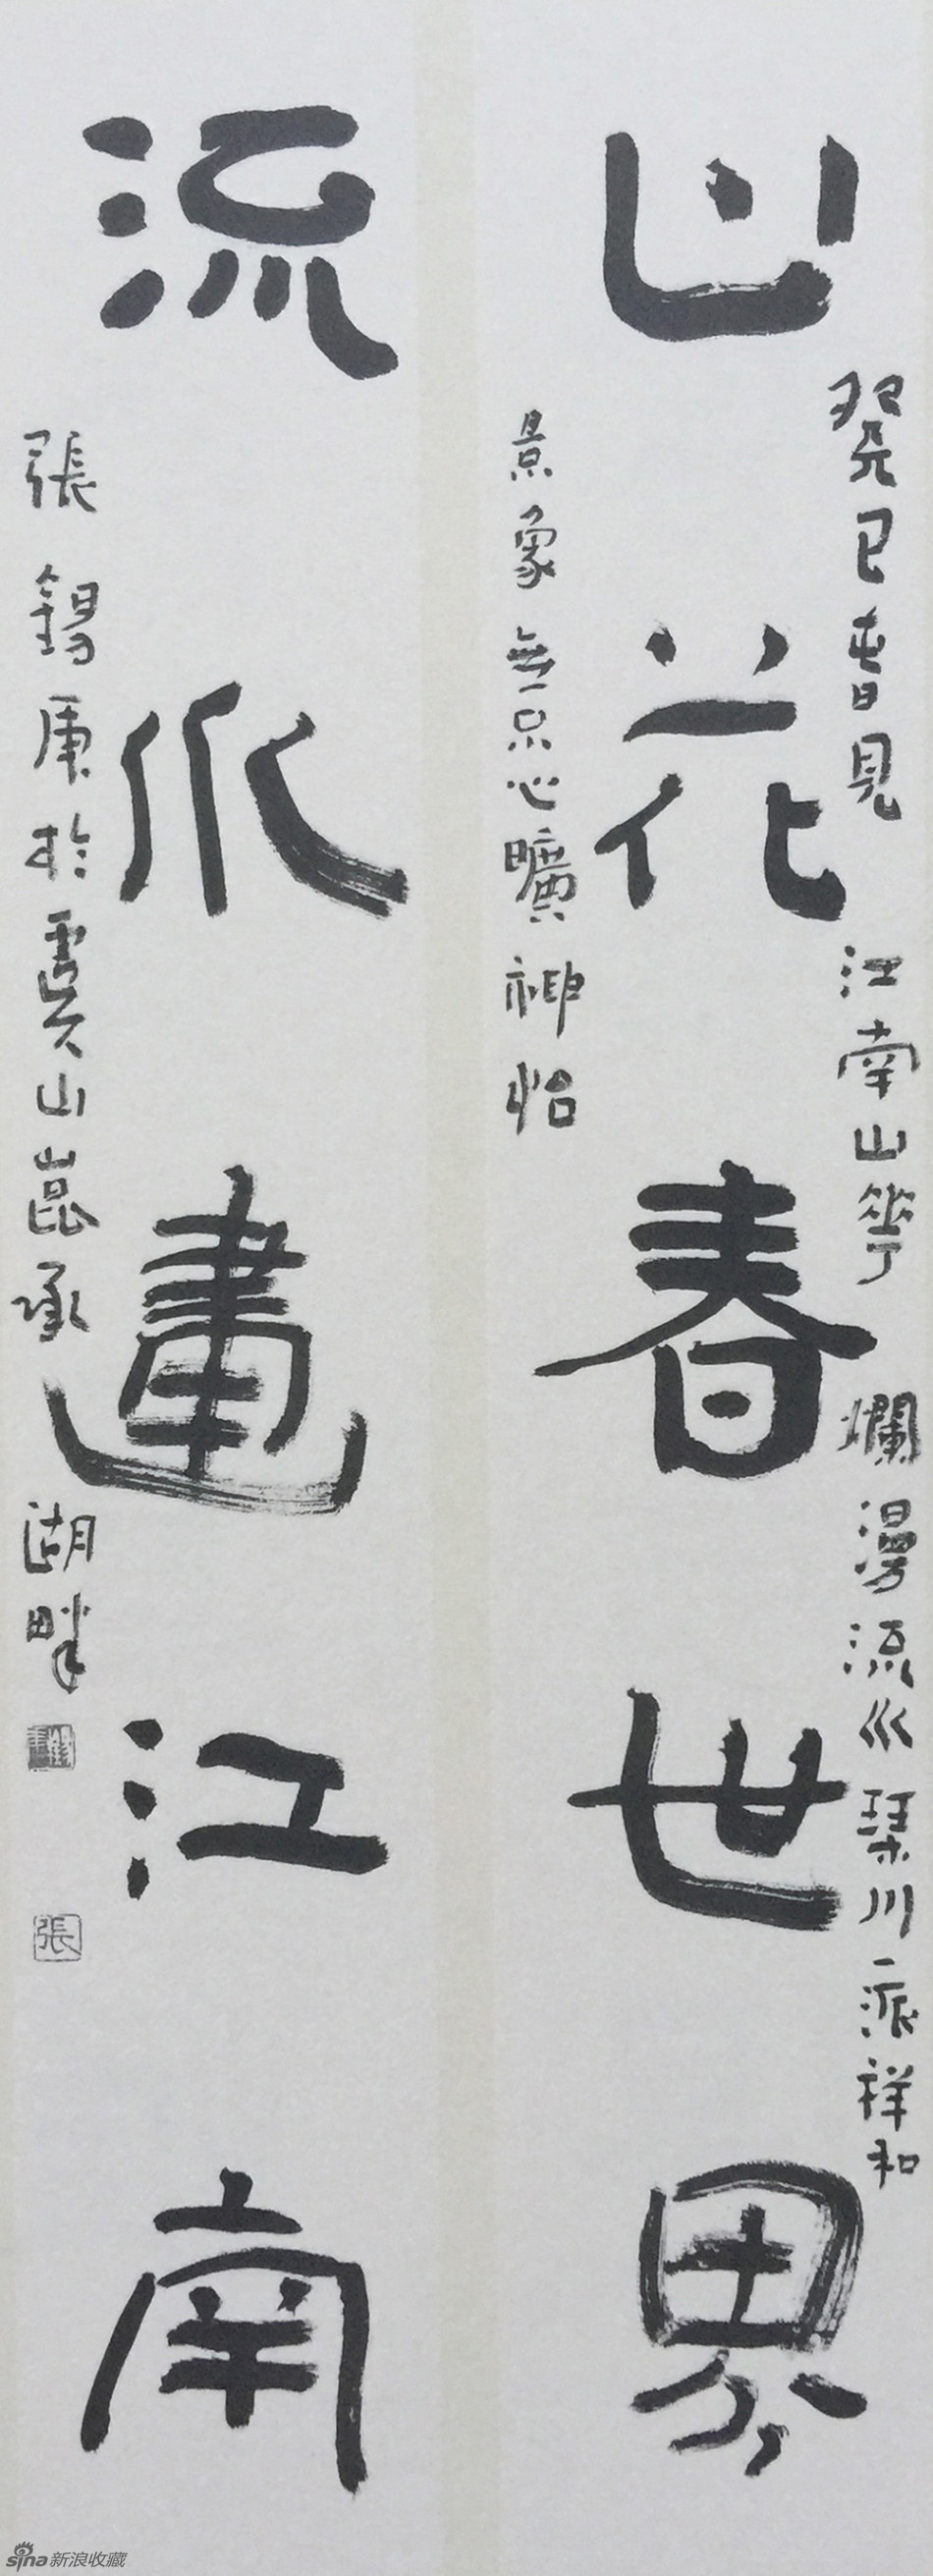 山花春世界
癸巳春見江南山花爛漫流水琹川一派祥和
景象無不心曠神怡
流水畫江南
張錫庚於虞山昆承湖畔
張
sina新浪收藏